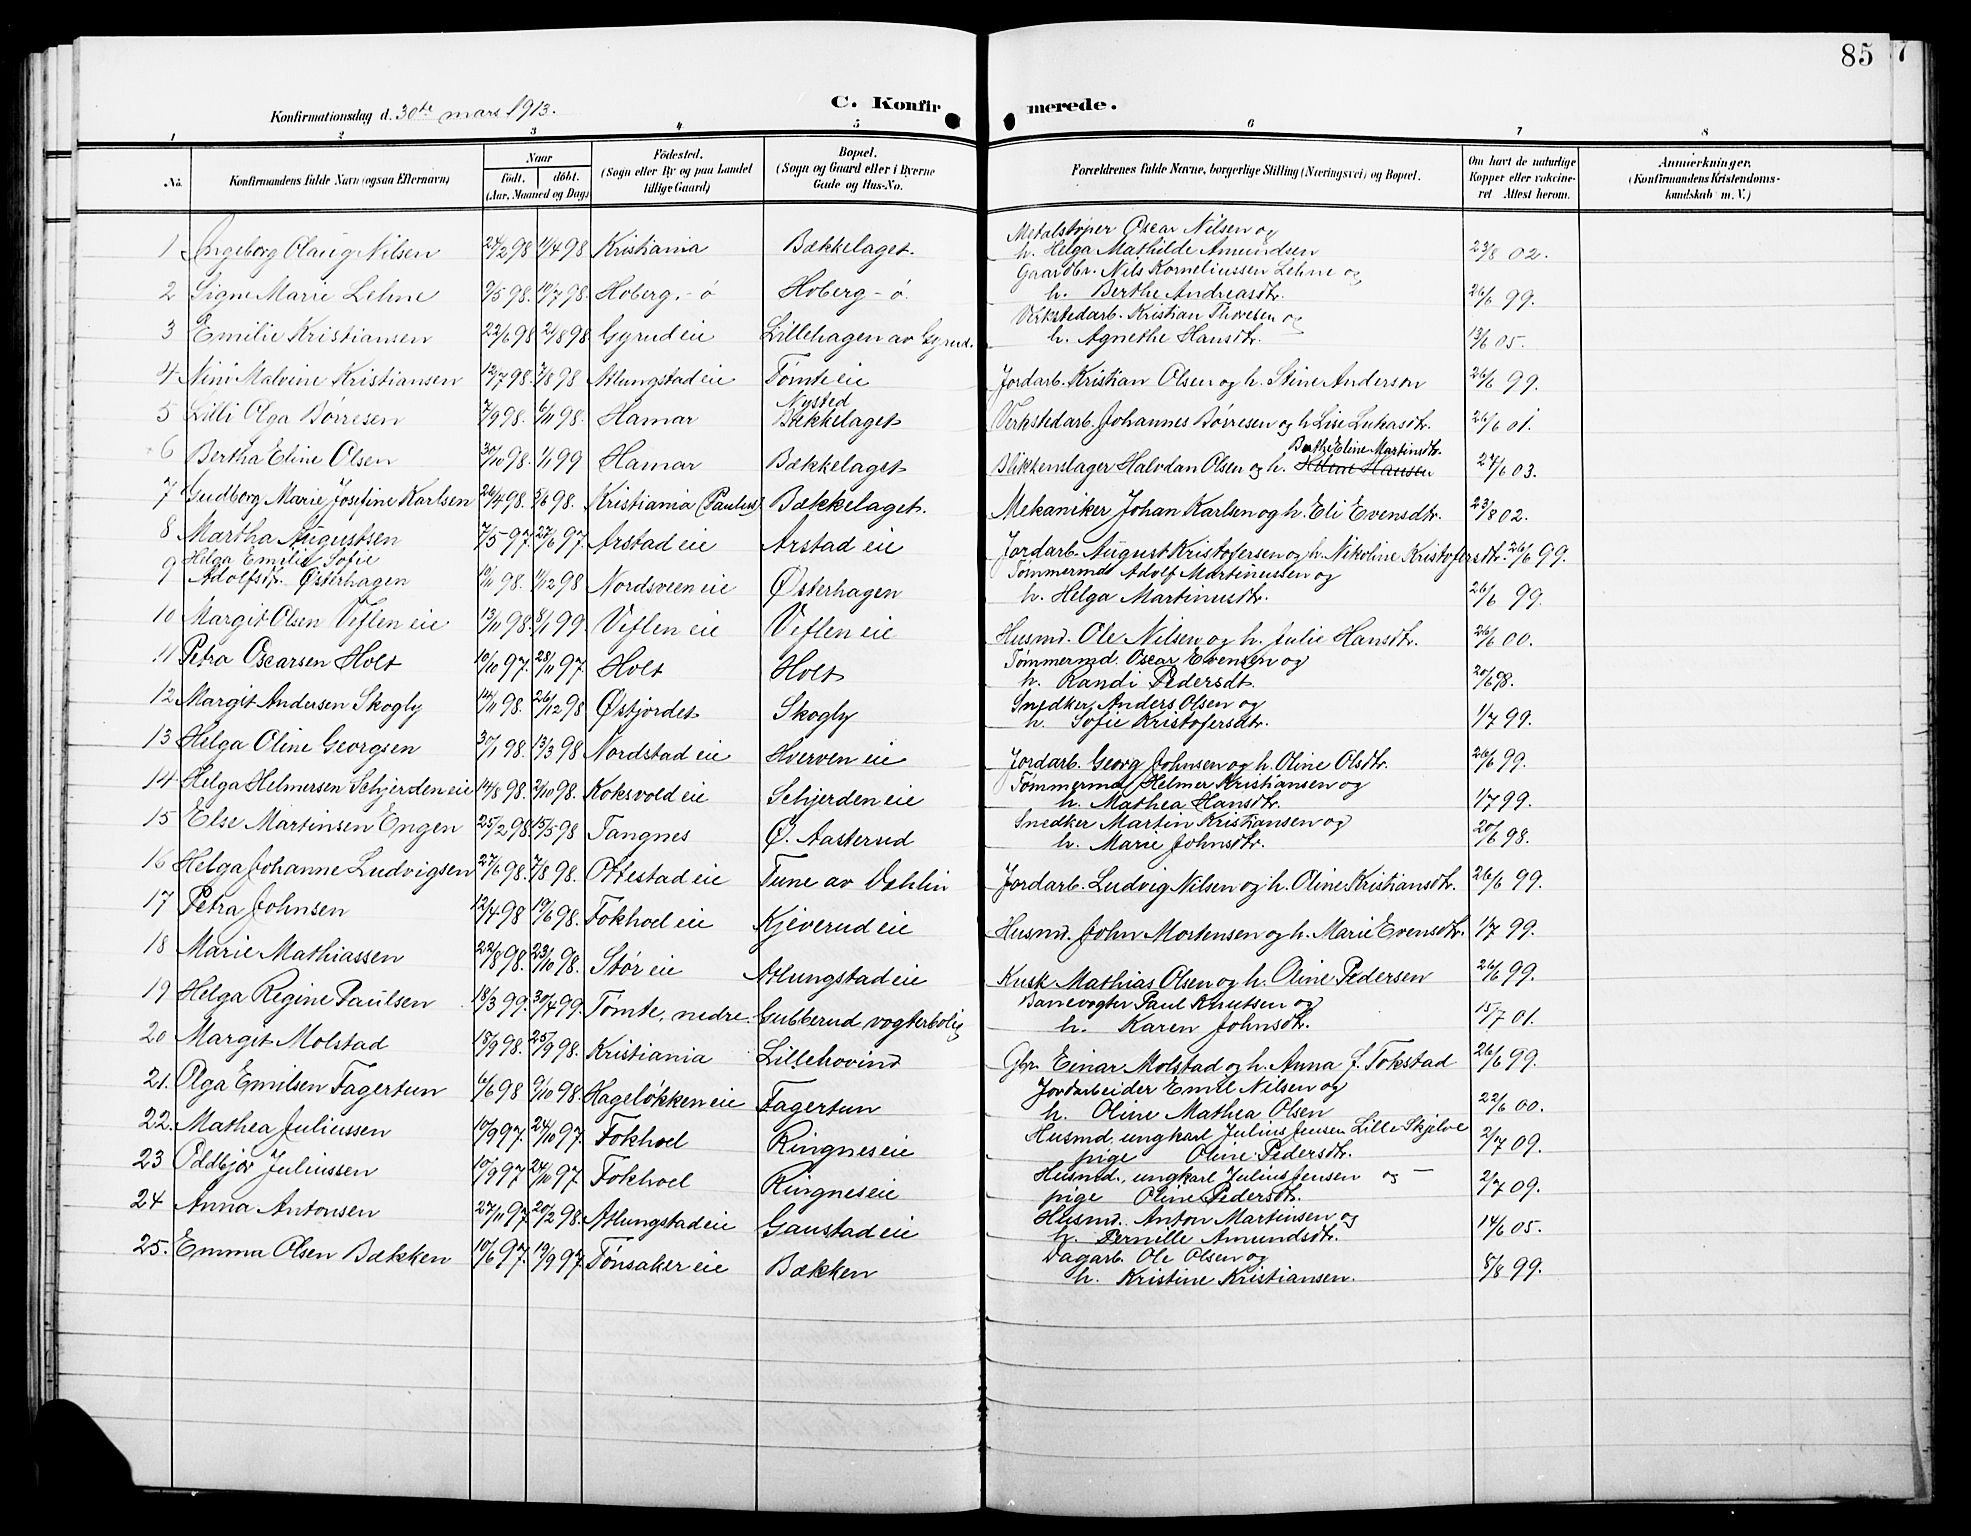 85
7
Konfirmationsdag d. 30de mars 1913.
C. Konfirmerede.
1 2 3 4 5 6 7 8
No. Konfirmandens fulde Navn (ogsaa Efternavn) Naar født. døbt. (Aar, Maaned og Dag) Fødested. (Sogn eller By og paa Landet tillige Gaard) Bopæl. (Sogn og Gaard eller i Byerne Gade og Hus-No. Forældrenes fulde Navne, borgerlige Stilling (Næringsvei) og Bopæl. Om havt de naturlige Kopper eller vakcineret. Attest herom. Anmærkninger. (Konfirmandens Kristendomskundskab m. V.)
1 Ingeborg Olaug Nilsen 24/2 98 11/4 98 Kristiania Bækkelaget. Metalstøper Oscar Nilsen og
h. Helga Mathilde Amundsen 23/8 02.
2 Signe Marie Lehne 9/5 98. 10/7 98. Hoberg, - ø Hoberg - ø. Gaardbr. Nils Korneliussen Lehne og
h. Berthe Andreasdtr. 26/6 99.
3 Emilie Kristiansen 22/6 98 21/8 98 Gyrud eie Lillehagen av Gyrud. Verkstedarb. Kristian Thoresen og
h. Agnethe Hansdtr. 13/6 05.
4 Nini Malvine Kristiansen 12/7 98. 7/8 98 Atlungstad eie Tomte eie Jordarb. Kristian Olsen og h. Stine Andersen 26/6 99.
5 Lilli Olga Børresen 7/9 98. 6/11 98. Hamar Nysted
Bækkelaget Verkstedarb. Johannes Børresen og h. Lise Lukasdtr. 26/6 01.
6 Bertha Eline Olsen 30/10 98. 1/1 99 Hamar Bækkelaget Blikkenslager Halvdan Olsen og h. Helene Hansen Berthe Eline Martinsdtr. 27/6 03.
7 Gudborg Marie Josefine Karlsen 26/4 98. 5/6 98. Kristiania (Paulus) Bækkelaget. Mekaniker Johan Karlsen og h. Eli Evensdtr. 23/8 02.
8 Martha Augustsen 7/5 97. 27/6 97. Arstad eie Arstad eie Jordarb. August Kristofersen og h. Nikoline Kristofersdtr. 26/6 99.
9 Helga Emilie Sofie
Adolfsdtr. Østerhagen 10/11 98. 11/2 98 Nordsveen eie Østerhagen Tømmermd. Adolf Martinussen og
h. Helga Martinusdtr. 26/6 99.
10 Margit Olsen Veflen eie 13/11 98. 8/1 99. Veflen eie Veflen eie Husmd. Ole Nilsen og h. Julie Hansdtr. 26/6 00.
11 Petra Oscarsen Holt 10/10 97. 28/11 97 Holt Holt Tømmermd. Oscar Evensen og
h. Randi Pedersdt. 20/6 98.
12 Margit Andersen Skogly 14/11 98. 26/12 98 Østjordet Skogly Snedker Anders Olsen og
h. Sofie Kristofersdtr. 1/7 99.
13 Helga Oline Georgsen 30/1 98. 13/3 98 Nordstad eie Hverven eie Jordarb. Georg Johnsen og h. Oline Olsdtr. 26/6 99.
14 Helga Helmersen Schjerden eie 14/8 98. 2/10 98. Koksvold eie Schjerden eie Tømmermd. Helmer Kristiansen og
h. Mathea Hansdtr. 1/7 99.
15 Else Martinsen Engen 25/2 98. 15/5 98 Tangnes Ø. Aasterud Snedker Martin Kristiansen og
h. Marie Johnsdtr. 20/6 98.
16 Helga Johanne Ludvigsen 27/6 98. 7/8 98. Ottestad eie Tune av Dahlin Jordarb. Ludvig Nilsen og h. Oline Kristiansdtr. 26/6 99.
17 Petra Johnsen 12/4 98 19/6 98. Fokhol eie Kjeverud eie Husmd. John Mortensen og h. Marie Evensdtr. 1/7 99.
18 Marie Mathiassen 22/8 98. 23/10 98. Stør eie Atlungstad eie Kusk Mathias Olsen og h. Oline Pedersen 26/6 99.
19 Helga Regine Paulsen 18/3 99. 30/4 99. Tomte, nedre. Gubberud vogterbolig Banevogter Paul Knutsen og
h. Karen Johnsdtr. 15/7 01.
20 Margit Molstad 18/9 98. 25/9 98. Kristiania Lillehovind Gbr. Einar Molstad og h. Anna f. Tokstad 26/6 99.
21. Olga Emilsen Fagertun 4/6 98 9/10 98. Hageløkken eie Fagertun Jordarbeider Emil Nilsen og
h. Oline Mathea Olsen 22/6 00.
22. Mathea Juliussen 10/9 97. 24/10 97. Fokhol Ringnes eie Husmd, ungkarl Julius Jensen Lille Skjelve
pige Oline Pedersdtr. 2/7 09.
23 Oddbjør Juliussen 10/9 97 24/10 97 Fokhol Ringnes eie Husmd., ungkarl Julius Jensen og —
pige Oline Pedersdtr. 2/7 09.
24 Anna Antonsen 27/11 97. 20/2 98. Atlungstad eie Gaustad eie Husmd. Anton Martinsen og
h. Pernille Amundsdtr. 14/6 05.
25. Emma Olsen Bækken 10/6 97. 19/9 97. Tønsaker eie Bækken Dagarb. Ole Olsen og
h. Kristine Kristiansen. 8/8 99.